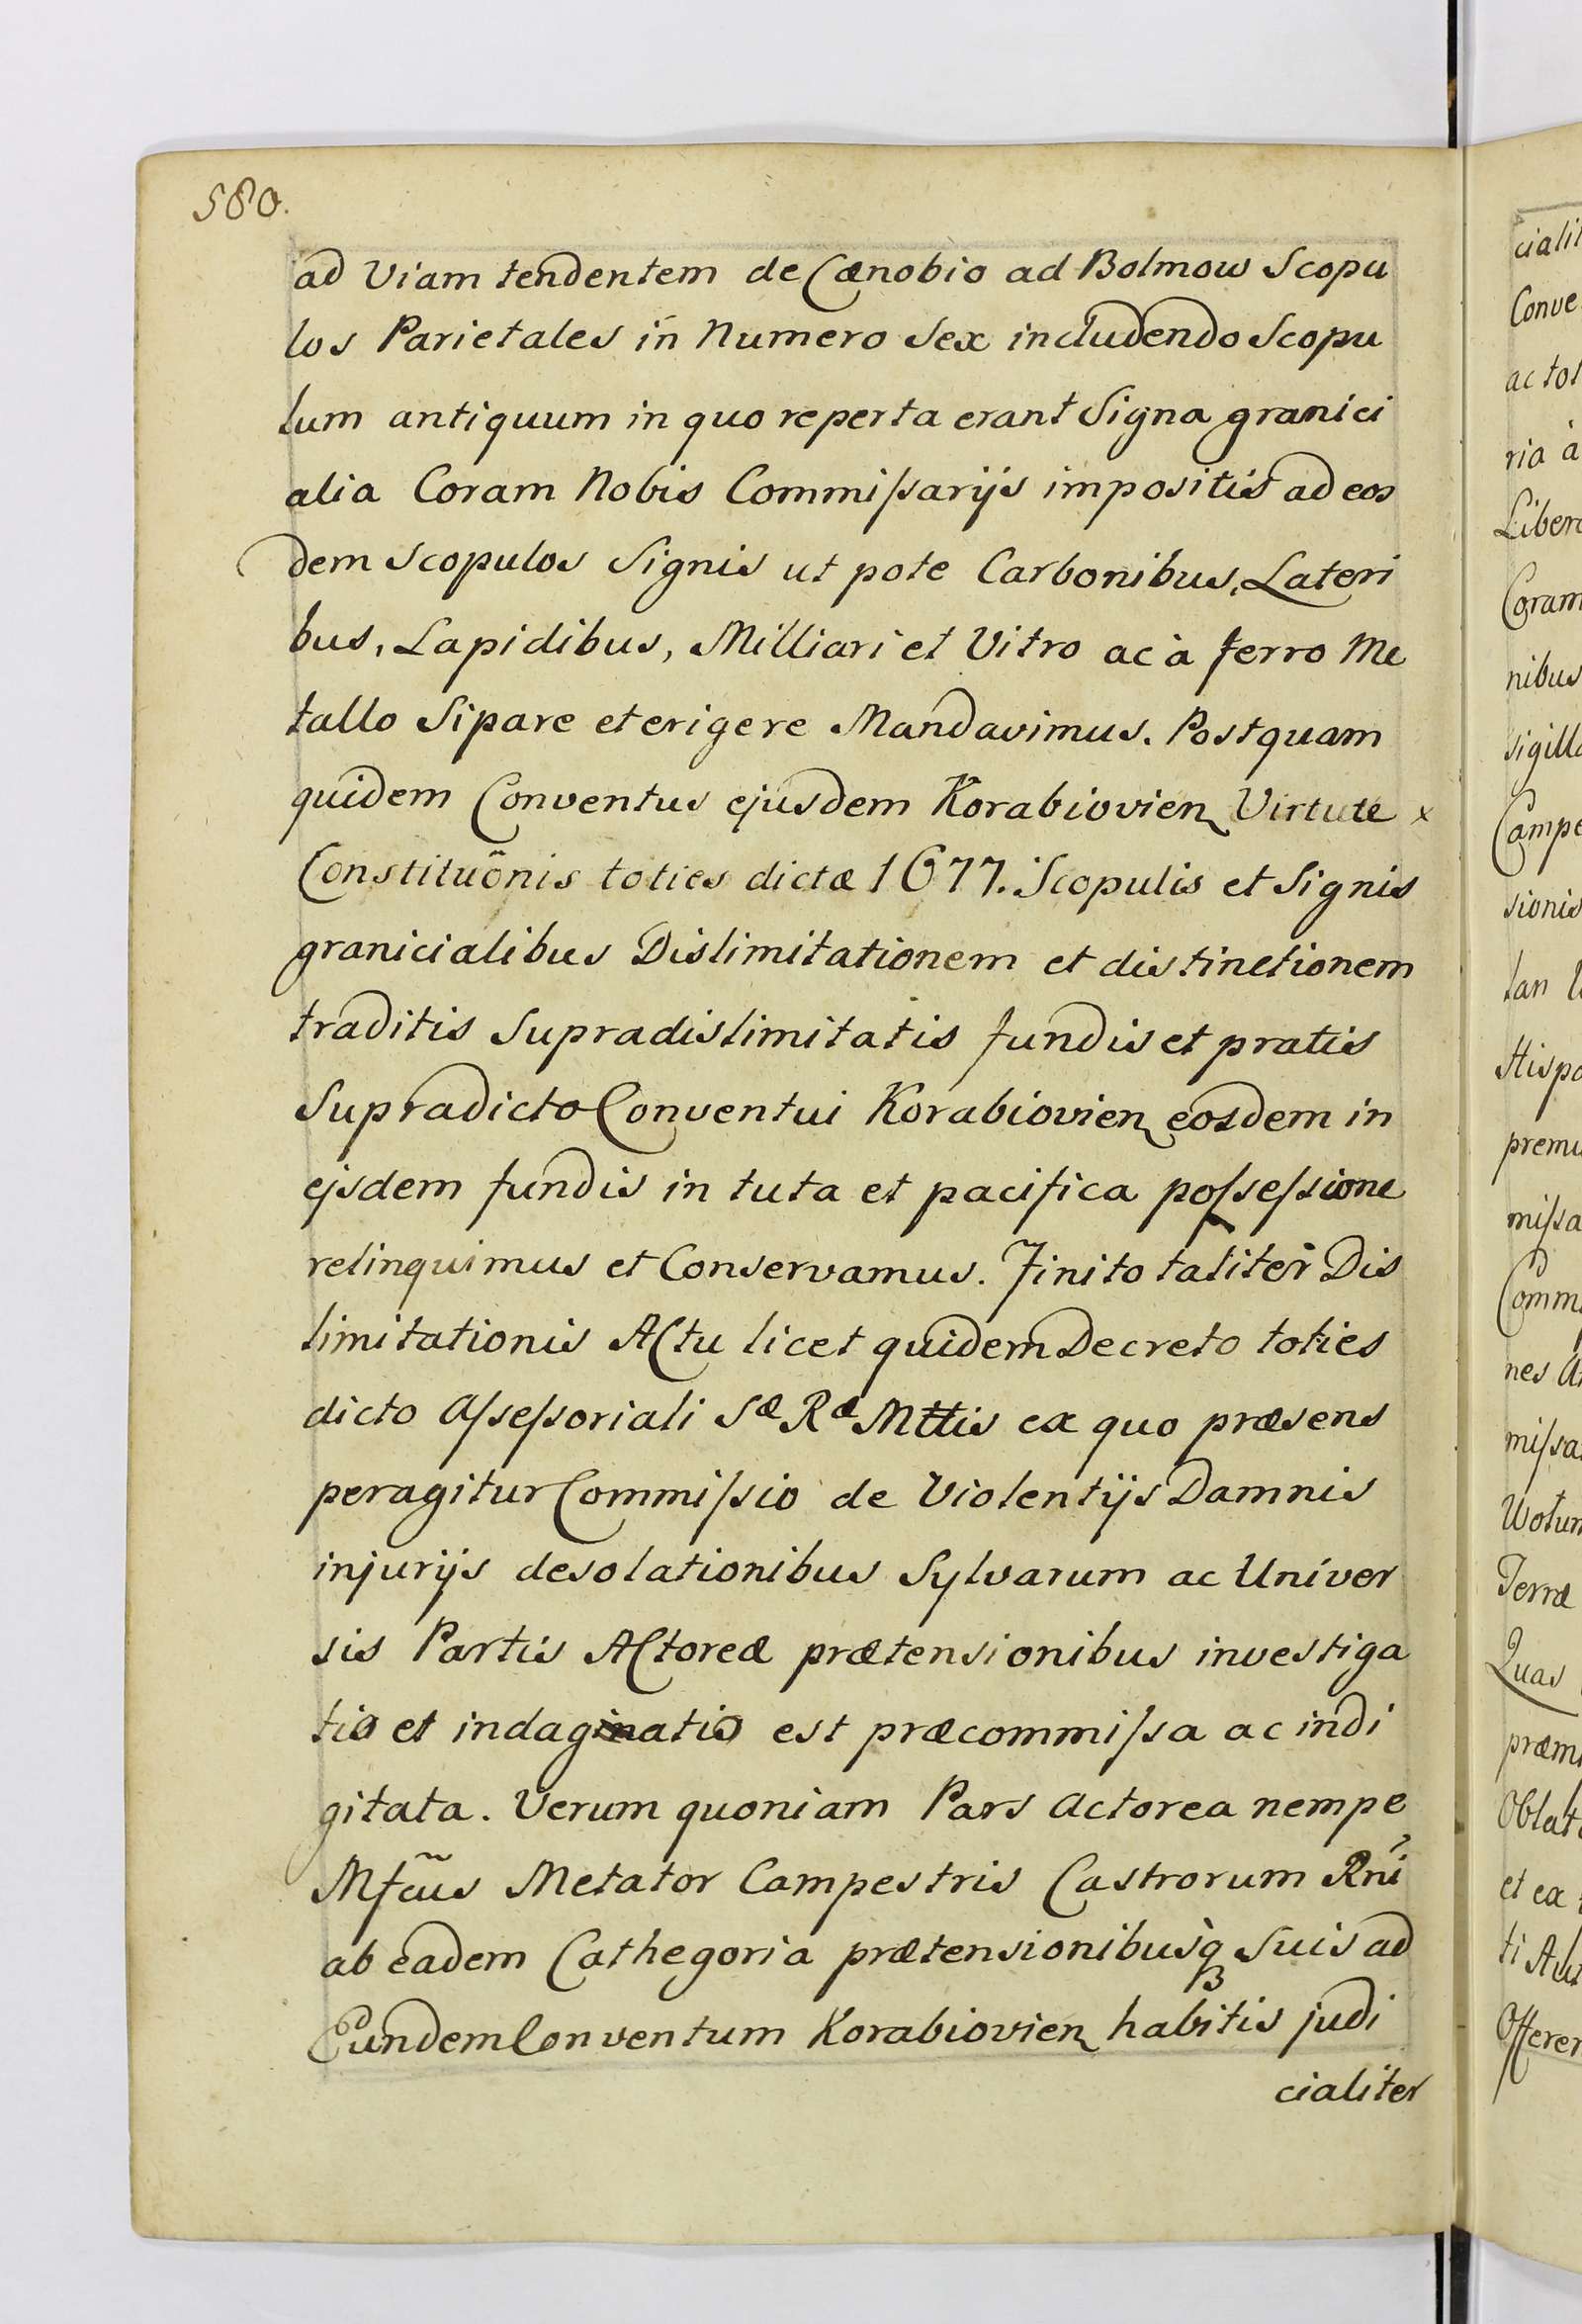 580.
ad Viam tendentem de Cænobio ad Bolmow Scopu
los Parietales in Numero Sex includendo Scopu
lum antiquum in quo reperta erant Signa granici
alia Coram Nobis Commissarijs impositis ad eos
dem Scopulos Signis ut pote Carbonibus, Lateri
bus, Lapidibus, Milliari et Vitro ac à ferro Me
tallo Sipare et erigere Mandavimus. Postquam
quidem Conventus ejusdem Korabiovien Virtute x
Constituõnis toties dictæ 1677. Scopulis et Signis
granicialibus Dislimitationem et distinctionem
traditis Supradislimitatis fundis et pratis
Supradicto Conventui Korabiovien eosdem in
ejsdem fundis in tuta et pacifica possessione
relinquimus et Conservamus. Finito taliter Dis
limitationis Actu licet quidem Decreto toties
dicto Assessoriali Sæ Ræ Mttis ex quo præsens
peragitur Commissio de Violentijs Damnis
injurijs desolationibus Sylvarum ac Univer
sis Partis Actoreæ prætensionibus investiga
tio et indaginatio est præcommissa ac indi
gitata. Verum quoniam Pars Actorea nempe
Mfcũs Metator Campestris Castrorum Rni
ab eadem Cathegoria prætensionibusq Suis ad
Eundem Conventum Korabiovien habitis judi
cialiter
cialit
Conve
ac tot
ria à
Libera
Coram
nibus
sigilla
Campe
sionis
tan
Hispa
premi
missa
Comm
nes
missa
Wotum
Terræ
Quas
præmi
Oblat
et ex
ti
Offeren